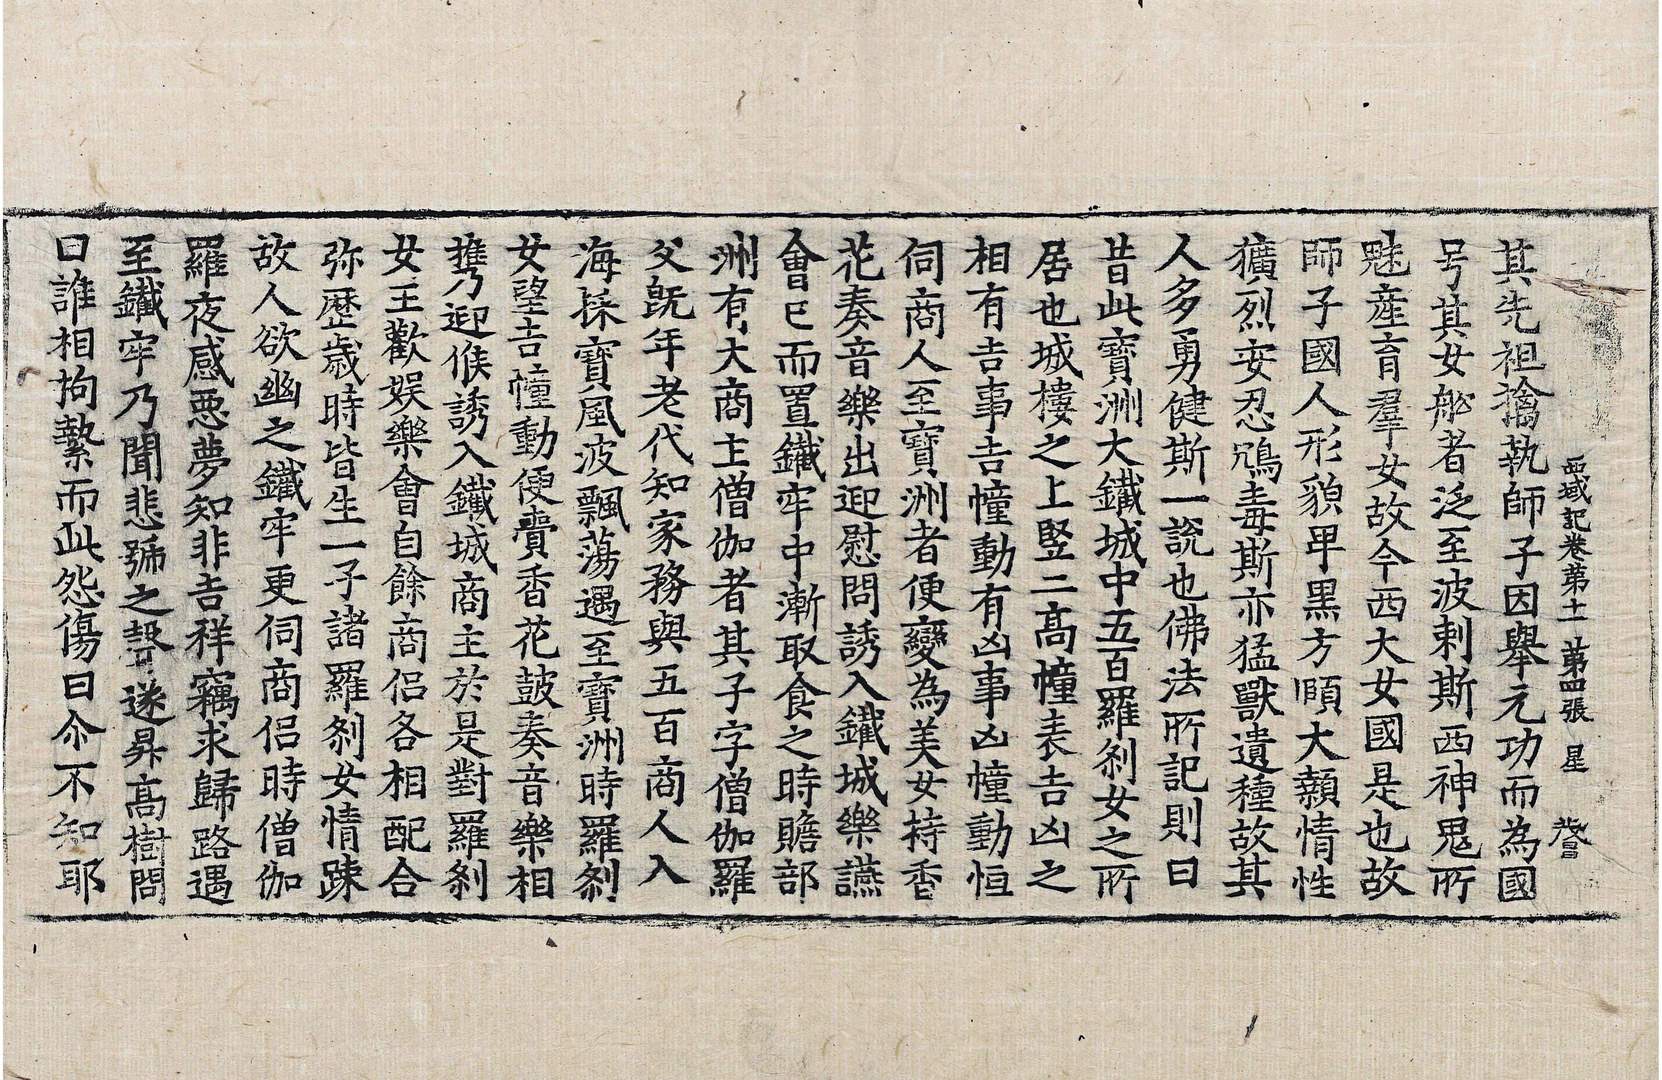 西域記卷苐十一 苐四張 星
其先祖擒執師子因舉元功而為國
号其女舩者泛至波剌斯西神鬼所
魅產育羣女故今西大女國是也故
師子國人形貌卑黑方頤大顙情性
獷烈安忍鴆毒斯亦猛獸遺種故其
人多勇健斯一說也佛法所記則曰
昔此寶洲大鐵城中五百羅剎女之所
居也城樓之上竪二高幢表吉凶之
相有吉事吉幢動有凶事凶幢動恒
伺商人至寶洲者便變為美女持香
花奏音樂出迎慰問誘入鐵城樂讌
會已而置鐵牢中漸取食之時贍部
洲有大商主僧伽者其子字僧伽羅
父旣年老代知家務與五百商人入
海採寶風波飄蕩遇至寶洲時羅剎
女望吉幢動便賷香花鼓奏音樂相
攜乃迎候誘入鐵城商主於是對羅剎
女王歡娛樂會自餘商侶各相配合
弥歷歲時皆生一子諸羅剎女情踈
故人欲幽之鐵牢更伺商侶時僧伽
羅夜感惡夢知非吉祥竊求歸路遇
至鐵牢乃聞悲號之聲遂昇高樹問
曰誰相拘縶而此怨傷曰尒不知耶